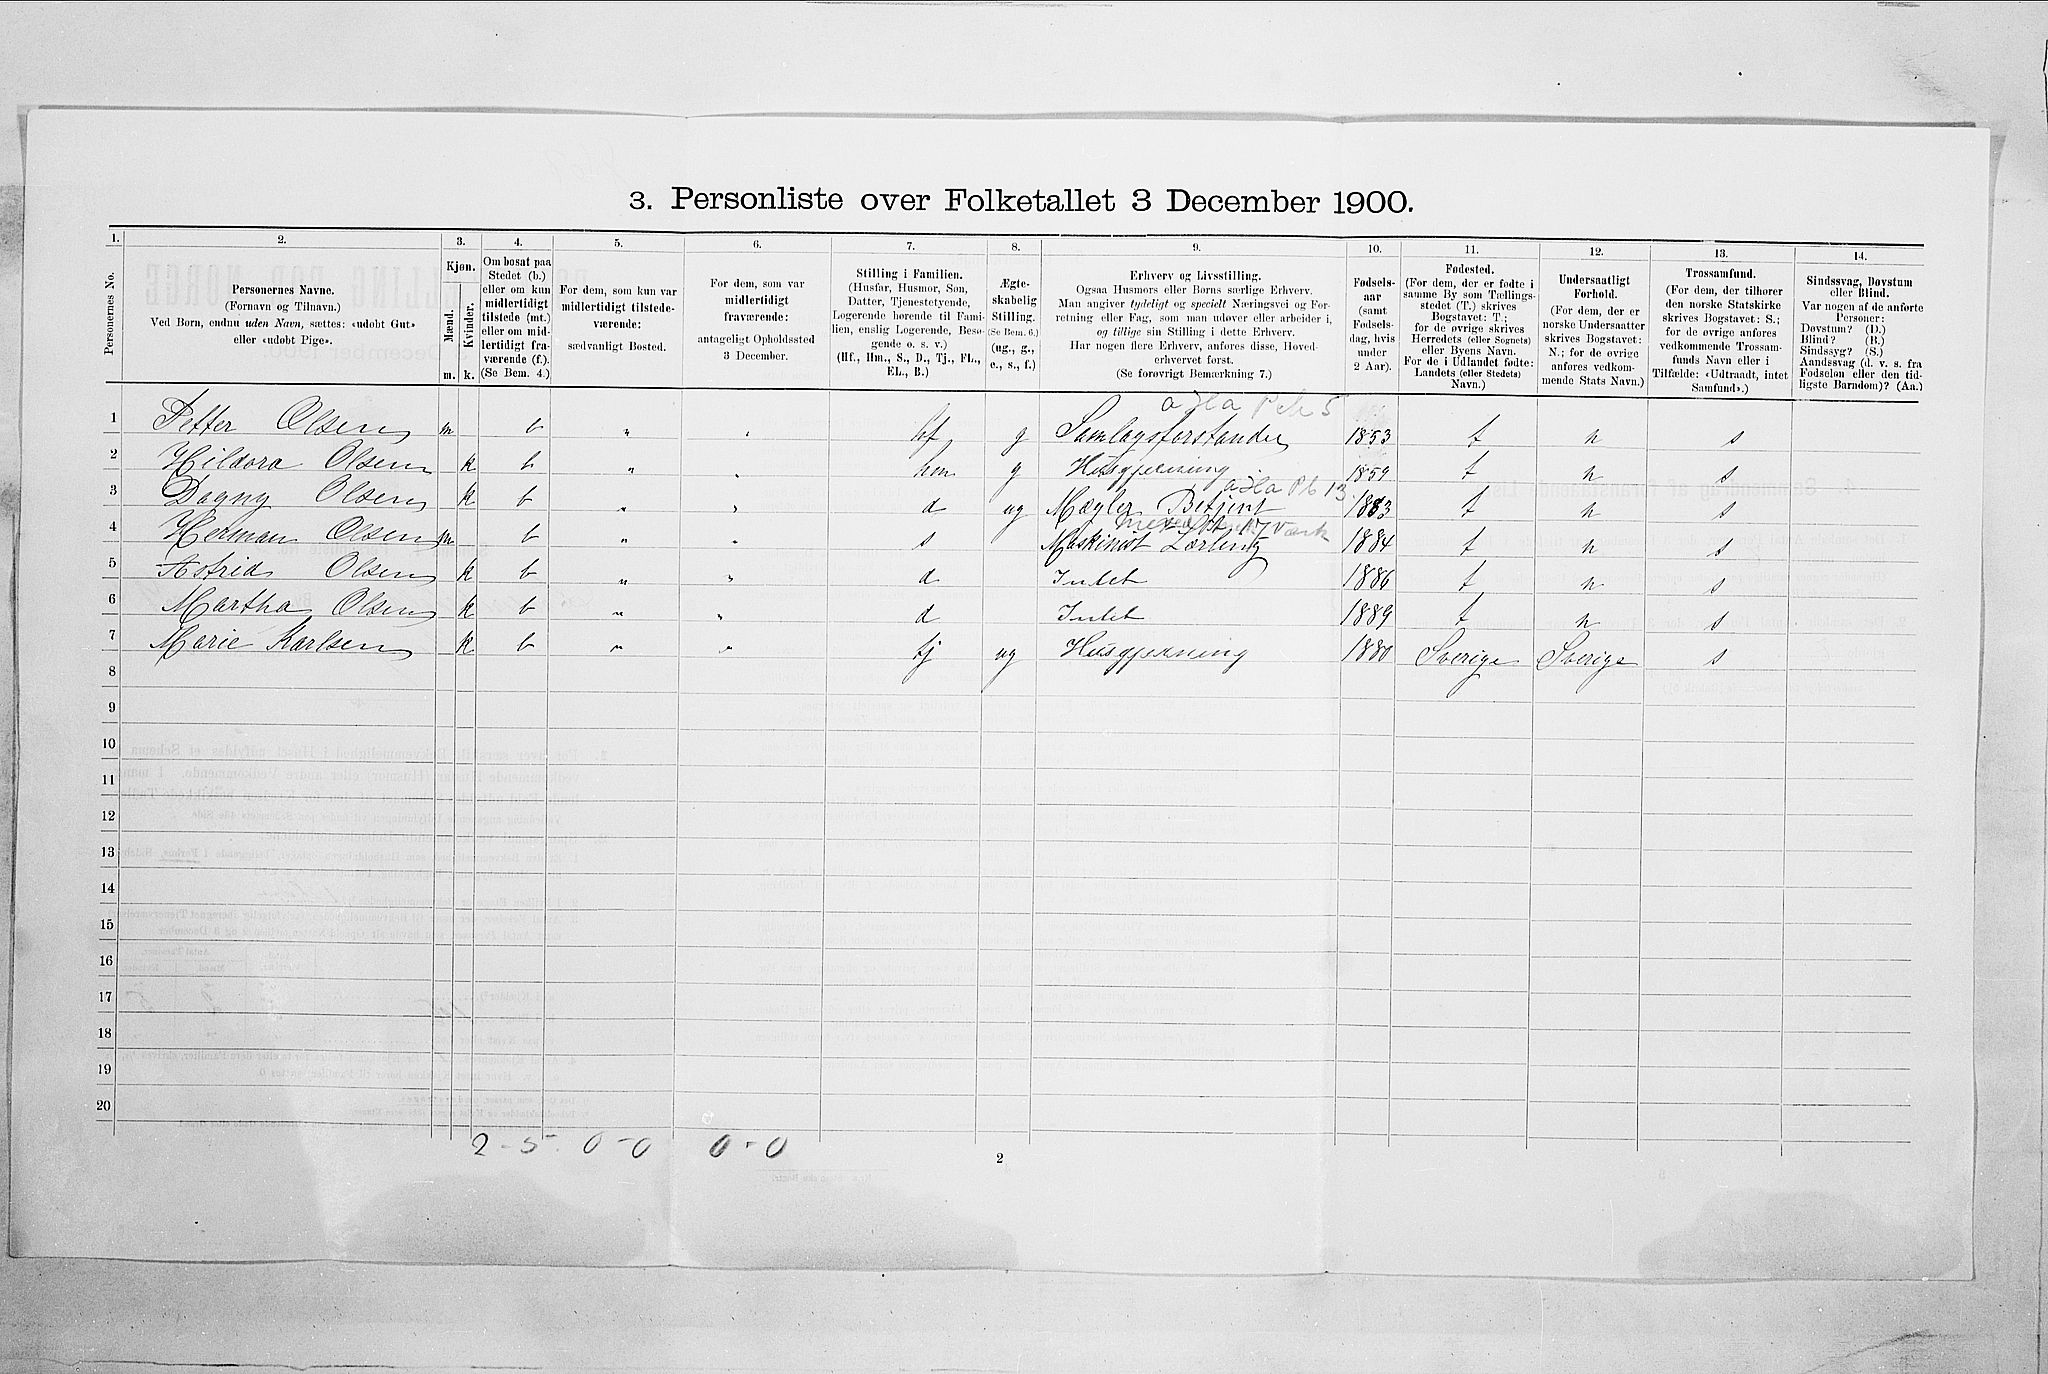 3. Personliste over Folketallet 3 December 1900.
1. 2. 3. 4. 5. 6. 7. 8. 9. 10. 11. 12. 13. 14.
Personernes No.
Personernes Navne.
(Fornavn og Tilnavn.)
Ved Børn, endnu uden Navn, sættes: «udøbt Gut»
eller «udøbt Pige».
Kjøn.
Mænd.
Kvinder.
m. k.
Om bosat paa
Stedet (b.)
eller om kun
midlertidigt
tilstede (mt.)
eller om mid-
lertidigt fra-
værende (f.).
(Se Bem. 4.)
For dem, som kun var
midlertidigt tilstede-
værende:
sædvanligt Bosted.
For dem, som var
midlertidigt
fraværende:
antageligt Opholdssted
3 December.
Stilling i Familien.
(Husfar, Husmor, Søn,
Datter, Tjenestetyende,
Logerende hørende til Fami-
lien, enslig Logerende, Besø-
gende o. s. v.)
(Hf., Hm., S., D., Tj., FL.,
EL., B.)
Ægte-
skabelig
Stilling.
(Se Bem. 6.)
(ug., g.,
e., s., f.)
Erhverv og Livsstilling.
Ogsaa Husmors eller Børns særlige Erhverv.
Man angiver tydeligt og specielt Næringsvei og For-
retning eller Fag, som man udøver eller arbeider i,
og tillige sin Stilling i dette Erhverv.
Har nogen flere Erhverv, anføres disse, Hoved-
erhvervet først.
(Se forøvrigt Bemærkning 7.)
Fødsels-
aar
(samt
Fødsels-
dag, hvis
under
2 Aar).
Fødested.
(For dem, der er fødte i
samme By som Tællings-
stedet (T.) skrives
Bogstavet: T.;
for de øvrige skrives
Herredets (eller Sognets)
eller Byens Navn.
For de i Udlandet fødte:
Landets (eller Stedets)
Navn.)
Undersaatligt
Forhold.
(For dem, der er
norske Undersaatter
skrives Bogstavet:
N.; for de øvrige
anføres vedkom-
mende Stats Navn.)
Trossamfund.
(For dem, der tilhører
den norske Statskirke
skrives Bogstavet: S.;
for de øvrige anføres
vedkommende Trossam-
funds Navn eller i
Tilfælde: «Udtraadt, intet
Samfund».)
Sindssvag, Døvstum
eller Blind.
Var nogen af de anførte
Personer:
Døvstum? (D.)
Blind? (B.)
Sindssyg? (S.)
Aandssvag (d. v. s. fra
Fødselen eller den tid-
ligste Barndom)? (Aa.)
1 Petter Olsen m b " " hf g Samlagsforstander 1853 t n s
2 Hildora Olsen k b " " hm g Husgjerning 1859 t n s
3 Dagny Olsen k b " " d ug Mægler Betjent 1883 t n s
4 Herman Olsen m b " " s Maskinist Lærling 1884 t n s
5 Astrid Olsen k b " " d Intet 1886 t n s
6 Martha Olsen k b " " d Intet 1889 t n s
7 Marie Karlsen k b " " tj ug Husgjerning 1880 Sverige Sverige s
8
9
10
11
12
13
14
15
16
17
18
19
20
2-5 0-0 0-0
2